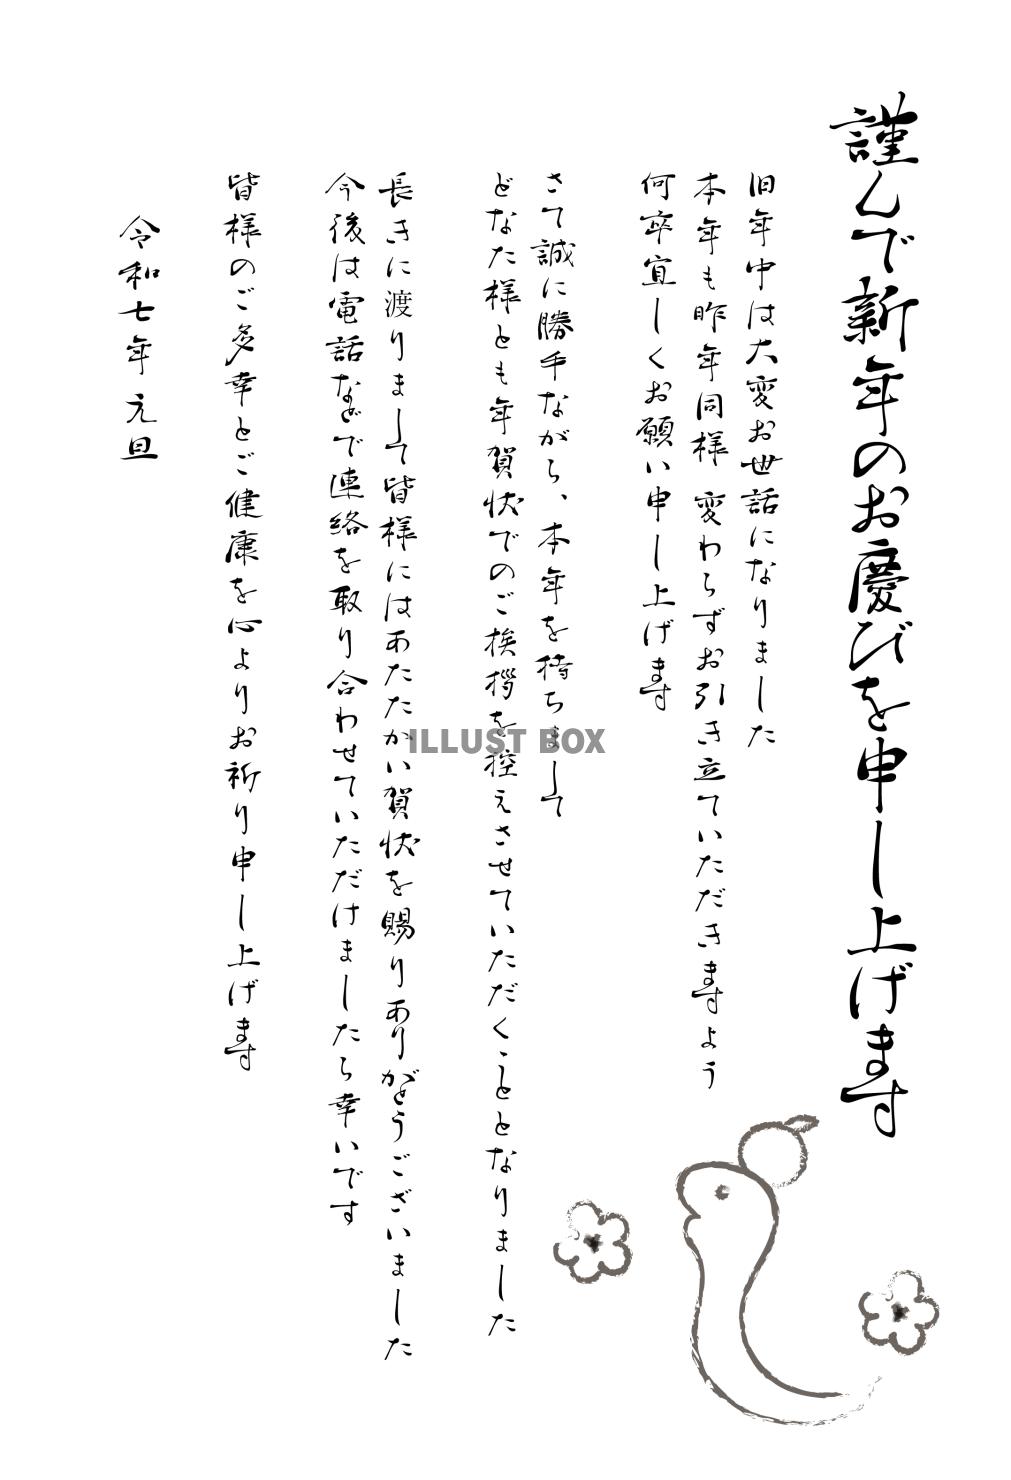 謹んで新年のお慶びを申し上げます
旧年中は大変お世話になりました
本年も昨年同様 変わらずお引き立ていただきますよう
何卒宜しくお願い申し上げます
さて誠に勝手ながら、本年を持ちまして
どなた様とも年賀状でのご挨拶を控えさせていただくこととなりました
長きに渡りまして皆様にはあたたかい賀状を賜りありがとうございました
今後は電話などで連絡を取り合わせていただけましたら幸いです
皆様のご多幸とご健康を心よりお祈り申し上げます
令和七年 元旦
ILLUST BOX